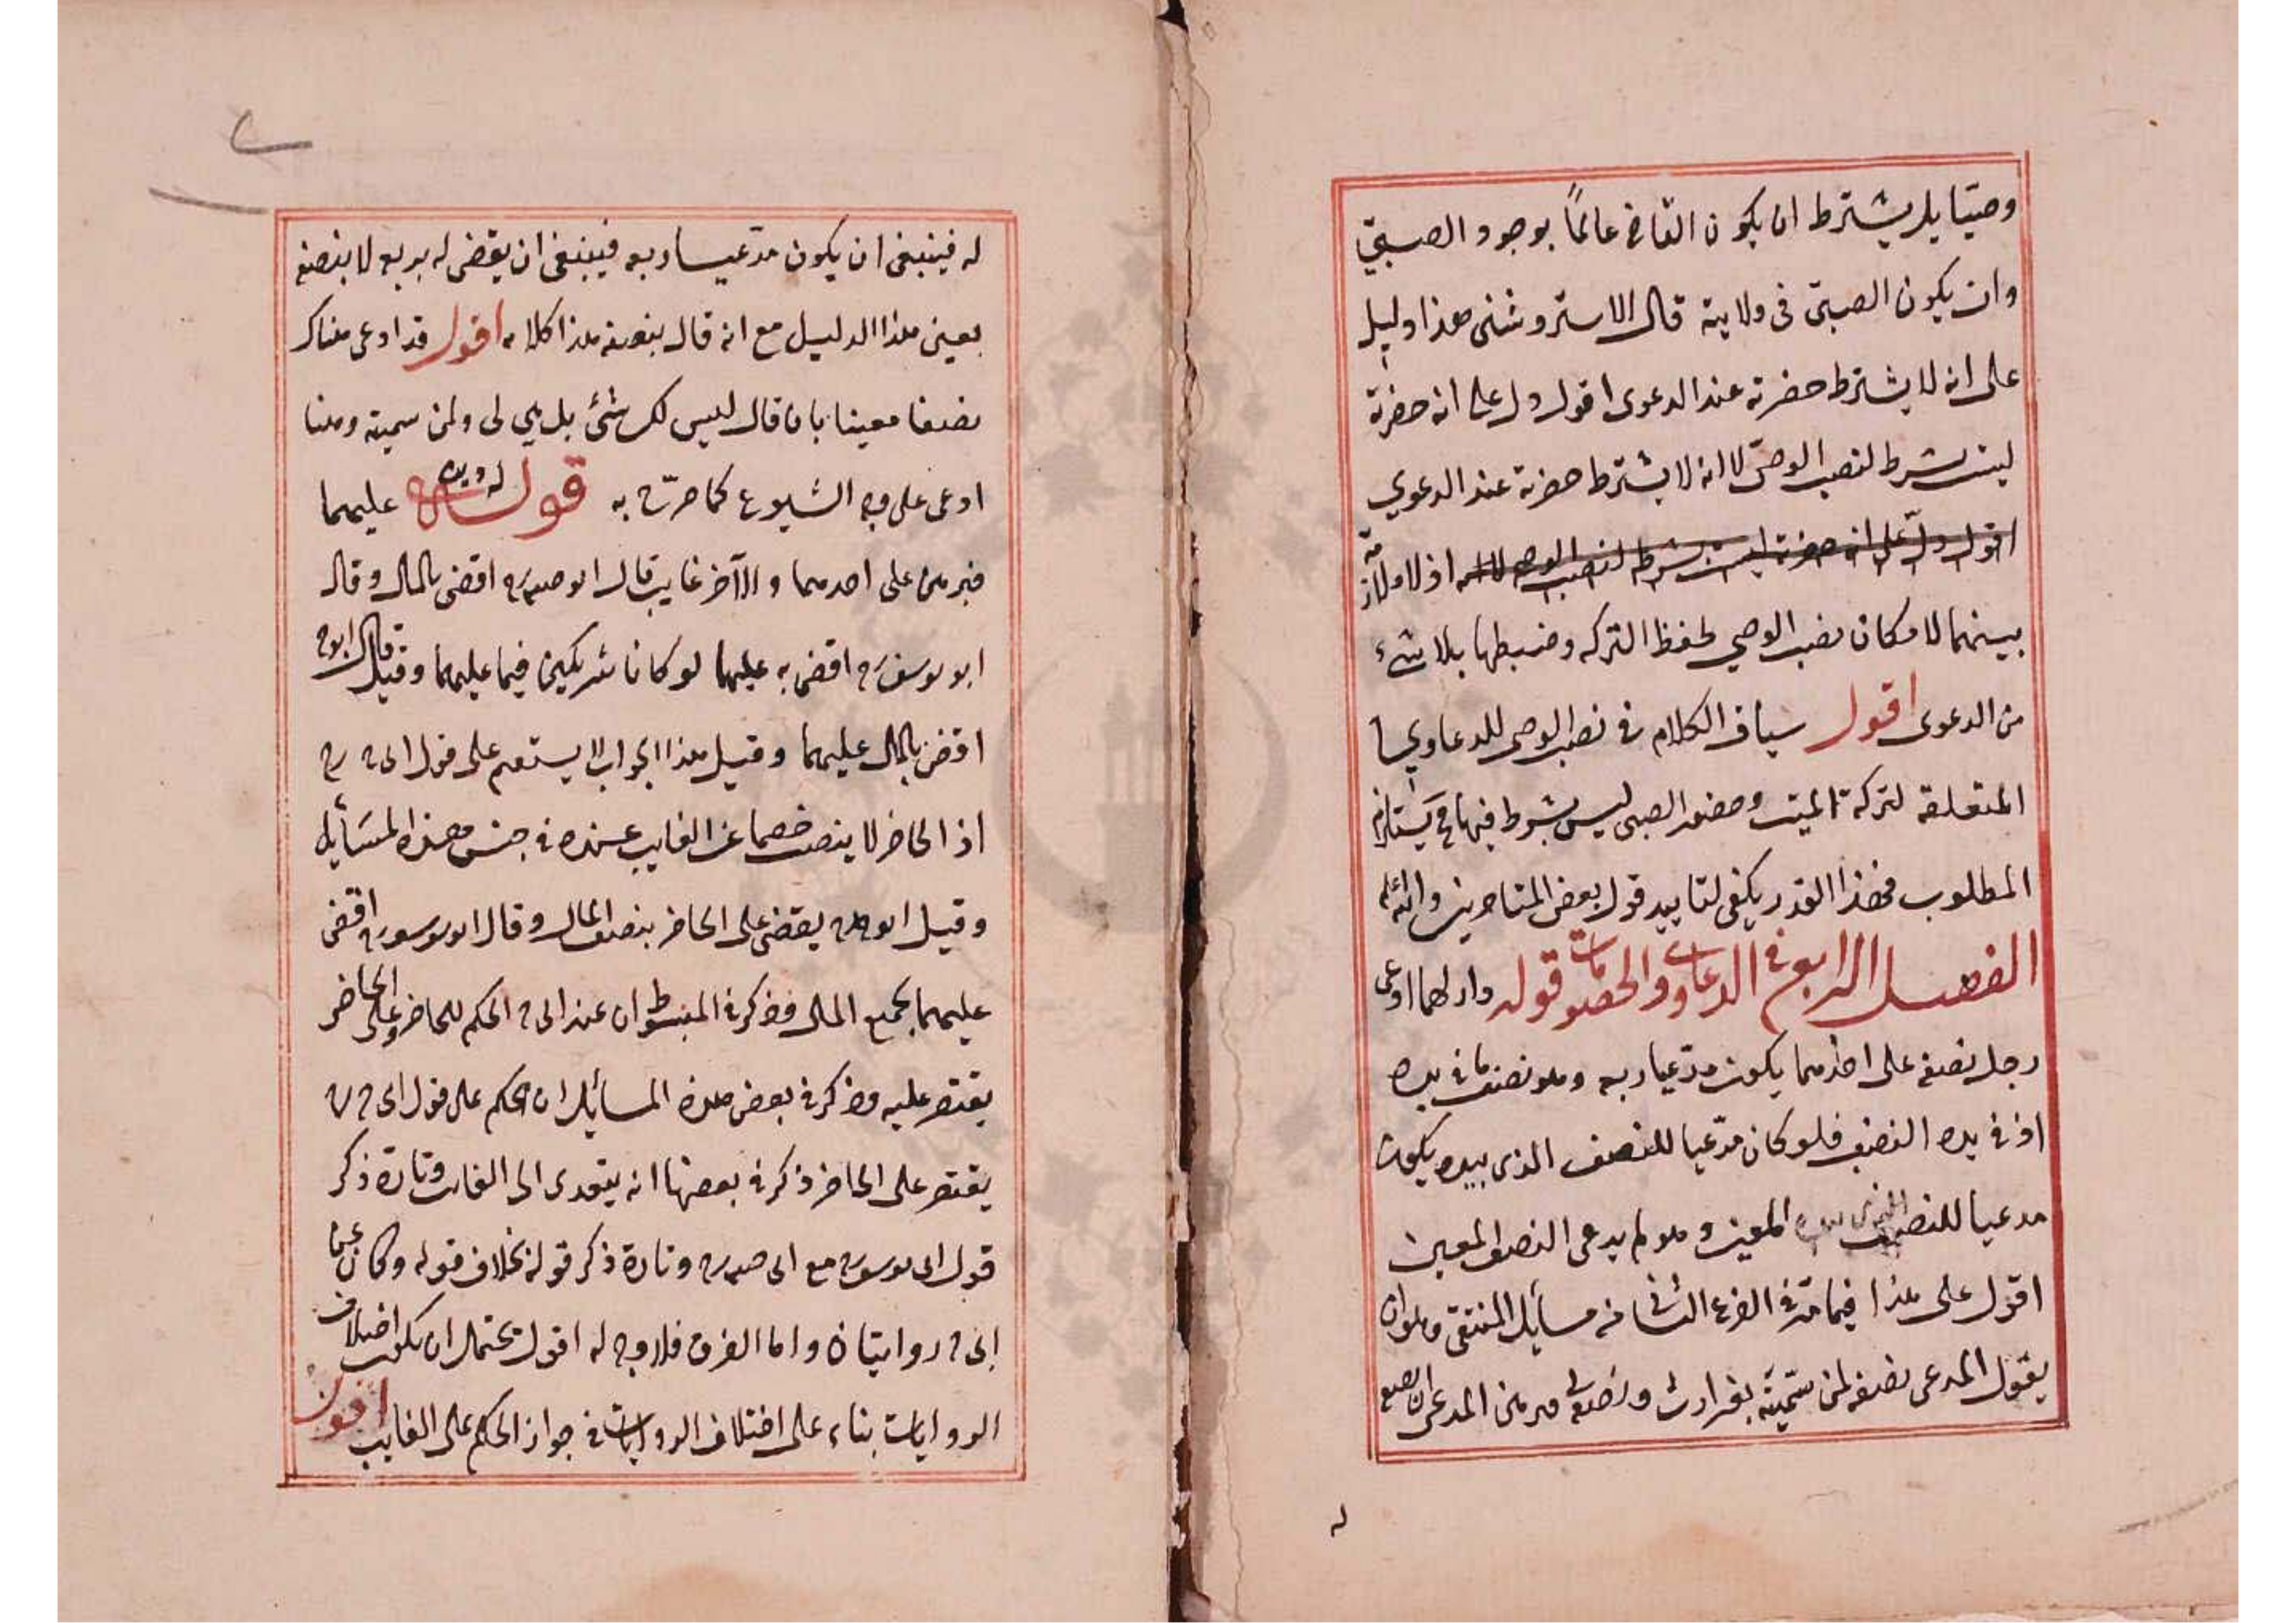 وصيّا بل يشترط ان يكون القاضي عالمًا بوجود الصبيّ
وان يكون الصبيّ فى ولايته قال الاستروشنى هذا دليل
على انه لا يشترط حضرته عند الدعوى اقول دل على انه حضرته
ليست بشرط لنصب الوصىّ لا انه لا يشترط حضرته عند الدعوي
اقول دلّ على انه حضرته ليست بشرط لنصب الوصى لا انه اذ لا ملازمة
بينهما لامكان نصب الوصي لحفظ التركه وضبطها بلا شيء
من الدعوى اقول سياق الكلام فى نصب الوصى للدعاوي
المتعلقة لتركة الميت وحضور الصبى ليس بشرط فيها فيستلزم
المطلوب فهذا القدر يكفى لتاييد قول بعض المتاخرين والله اعلم
الفصل الرابع فى الدعاوى والخصومات قوله دار لهما ادعى
رجل نصفه على احدهما يكون مدّعيا ربعه وهو نصف ما فى يده
اذ فى يده النصف فلو كان مدّعيا للنصف الذى بيده يكون
مدعيا للنصف المعين وهو لم يدعى النصف المعين
اقول على هذا فيما مرّ فى الفرع الثانى من مسايل المنتقى وهو ان
يقول المدعى نصفه لى سمّيته ونصفه لى وبرهن المدعى ان نصفه
له
له فينبغى ان يكون مدّعيا ربعه فينبغى ان يقضى له بربع لا بنصفه
بعين هذا الدليل مع انه قال بنصفه هذا كلامه اقول قد ادعى هناك
نصفا معينا بان قال ليس لك شئ بل هى لى ولمن سميته وهنا
ادعى على وجه الشيوع كما صرّح به قوله له دين عليهما
فبرهن على احدهما والآخر غايب قال ابو حنيفة رح اقضى بالمال وقال
ابو يوسف رح اقضى به عليهما لو كانا شريكين فيما عليهما وقيل قال ابو ح
اقضى بالمال عليهما وقيل هذا الجواب لا يستقيم على قول ابى ح رح
اذ الحاضر لا ينصب خصما عن الغايب عنده فى جنس هذه المسَايل
وقيل ابو ح يقضى على الحاضر بنصف المال وقال ابو يوسف رح اقضى
عليهما بجميع المال وذكر فى المبسوط ان عند ابى ح الحكم للحاضر وعلى الحاضر
يقتصر عليه وذكر فى بعض هذه المسايل ان الحكم على قول ابى ح رح
يقتصر على الحاضر ذكر فى بعضها انه يتعدى الى الغايب وتارة ذكر
قول ابى يوسف رح مع ابى حنيفة رح وتارة ذكر قوله بخلاف قوله وكان عن
ابى ح روايتان واما الفرق فلا وجه له اقول يحتمل ان يكون اختلاف
الروايات بناء على اختلاف الروايات فى جواز الحكم على الغايب اقول